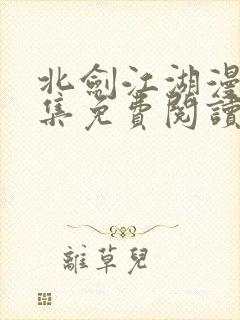 北劍江湖漫
集免費閱讀
離草兒